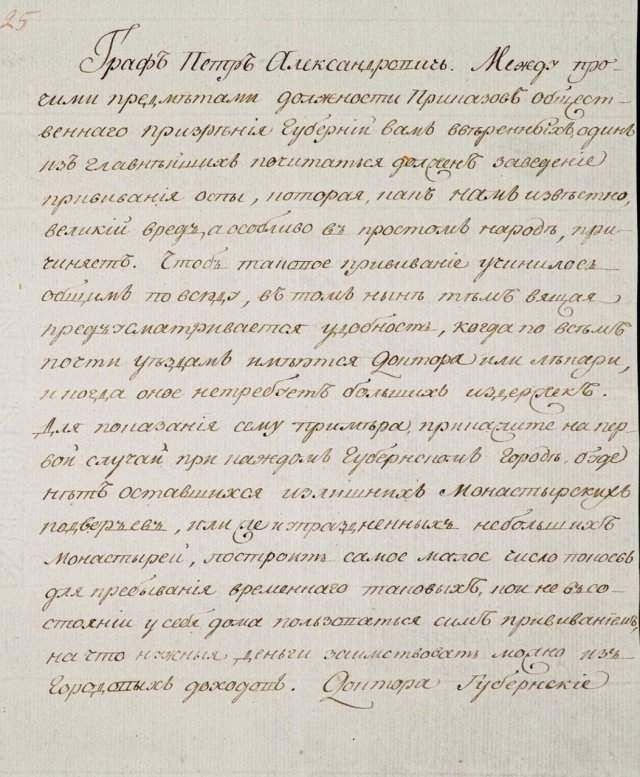 25
Графъ Петръ Александровичь. Между про-
чими предмѣтами должности Приказовъ общест-
веннаго призрѣнія Губерній вамъ ввѣренныхъ, одинъ
изъ главнѣйшихъ почитаться долженъ заведеніе
прививанія оспы, которая, какъ намъ извѣстно,
великій вредъ, а особливо въ простомъ народѣ, при-
чиняетъ. Чтобъ таковое прививаніе учинилось
общимъ повсюду, въ томъ нынѣ тѣмъ вящая
предъусматривается удобность, когда по всѣмъ
почти уѣздамъ имѣются Доктора или лѣкари,
и когда оное не требуетъ большихъ издержекъ.
Для показанія сему примѣра, прикажите на пер-
вой случай при каждомъ Губернскомъ Городѣ, буде
нѣтъ оставшихся излишнихъ Монастырскихъ
подворьевъ, или же изпраздненныхъ небольшихъ
Монастырей, построить самое малое число покоевъ
для пребыванія временнаго таковыхъ, кои не въ со-
стояніи у себя дома пользоваться симъ прививаніемъ,
на что нужныя деньги заимствовать можно изъ
Городовыхъ доходовъ. Доктора Губернскіе